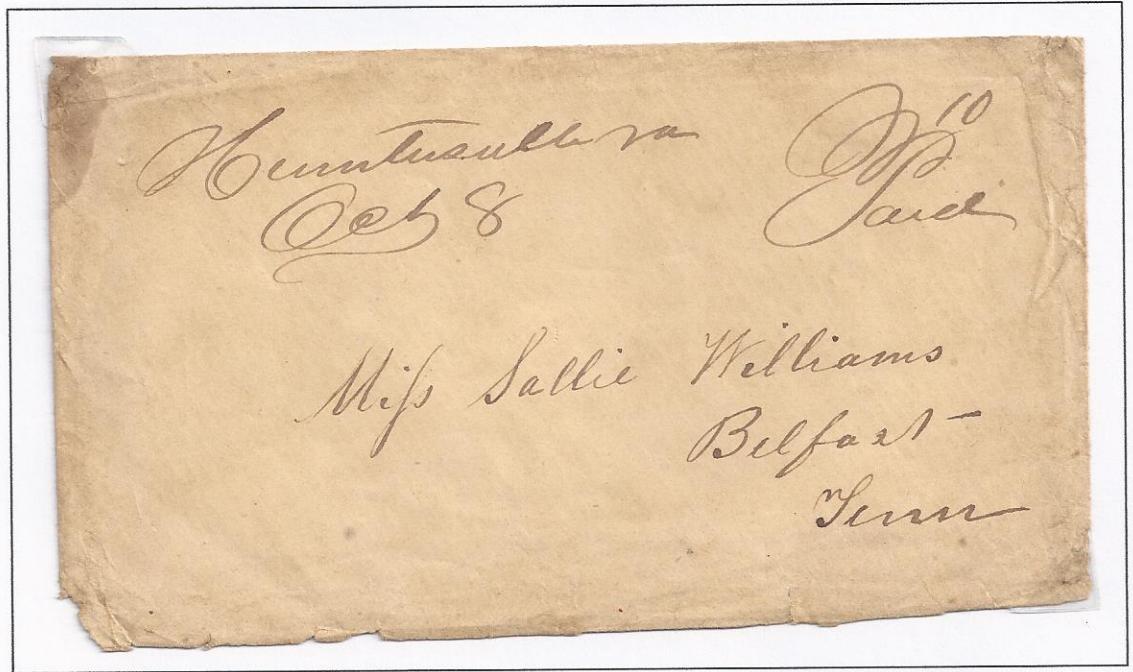 Huntersville va
Oct 8
10
Paid
Miss Sallie Williams
Belfast
Tenn